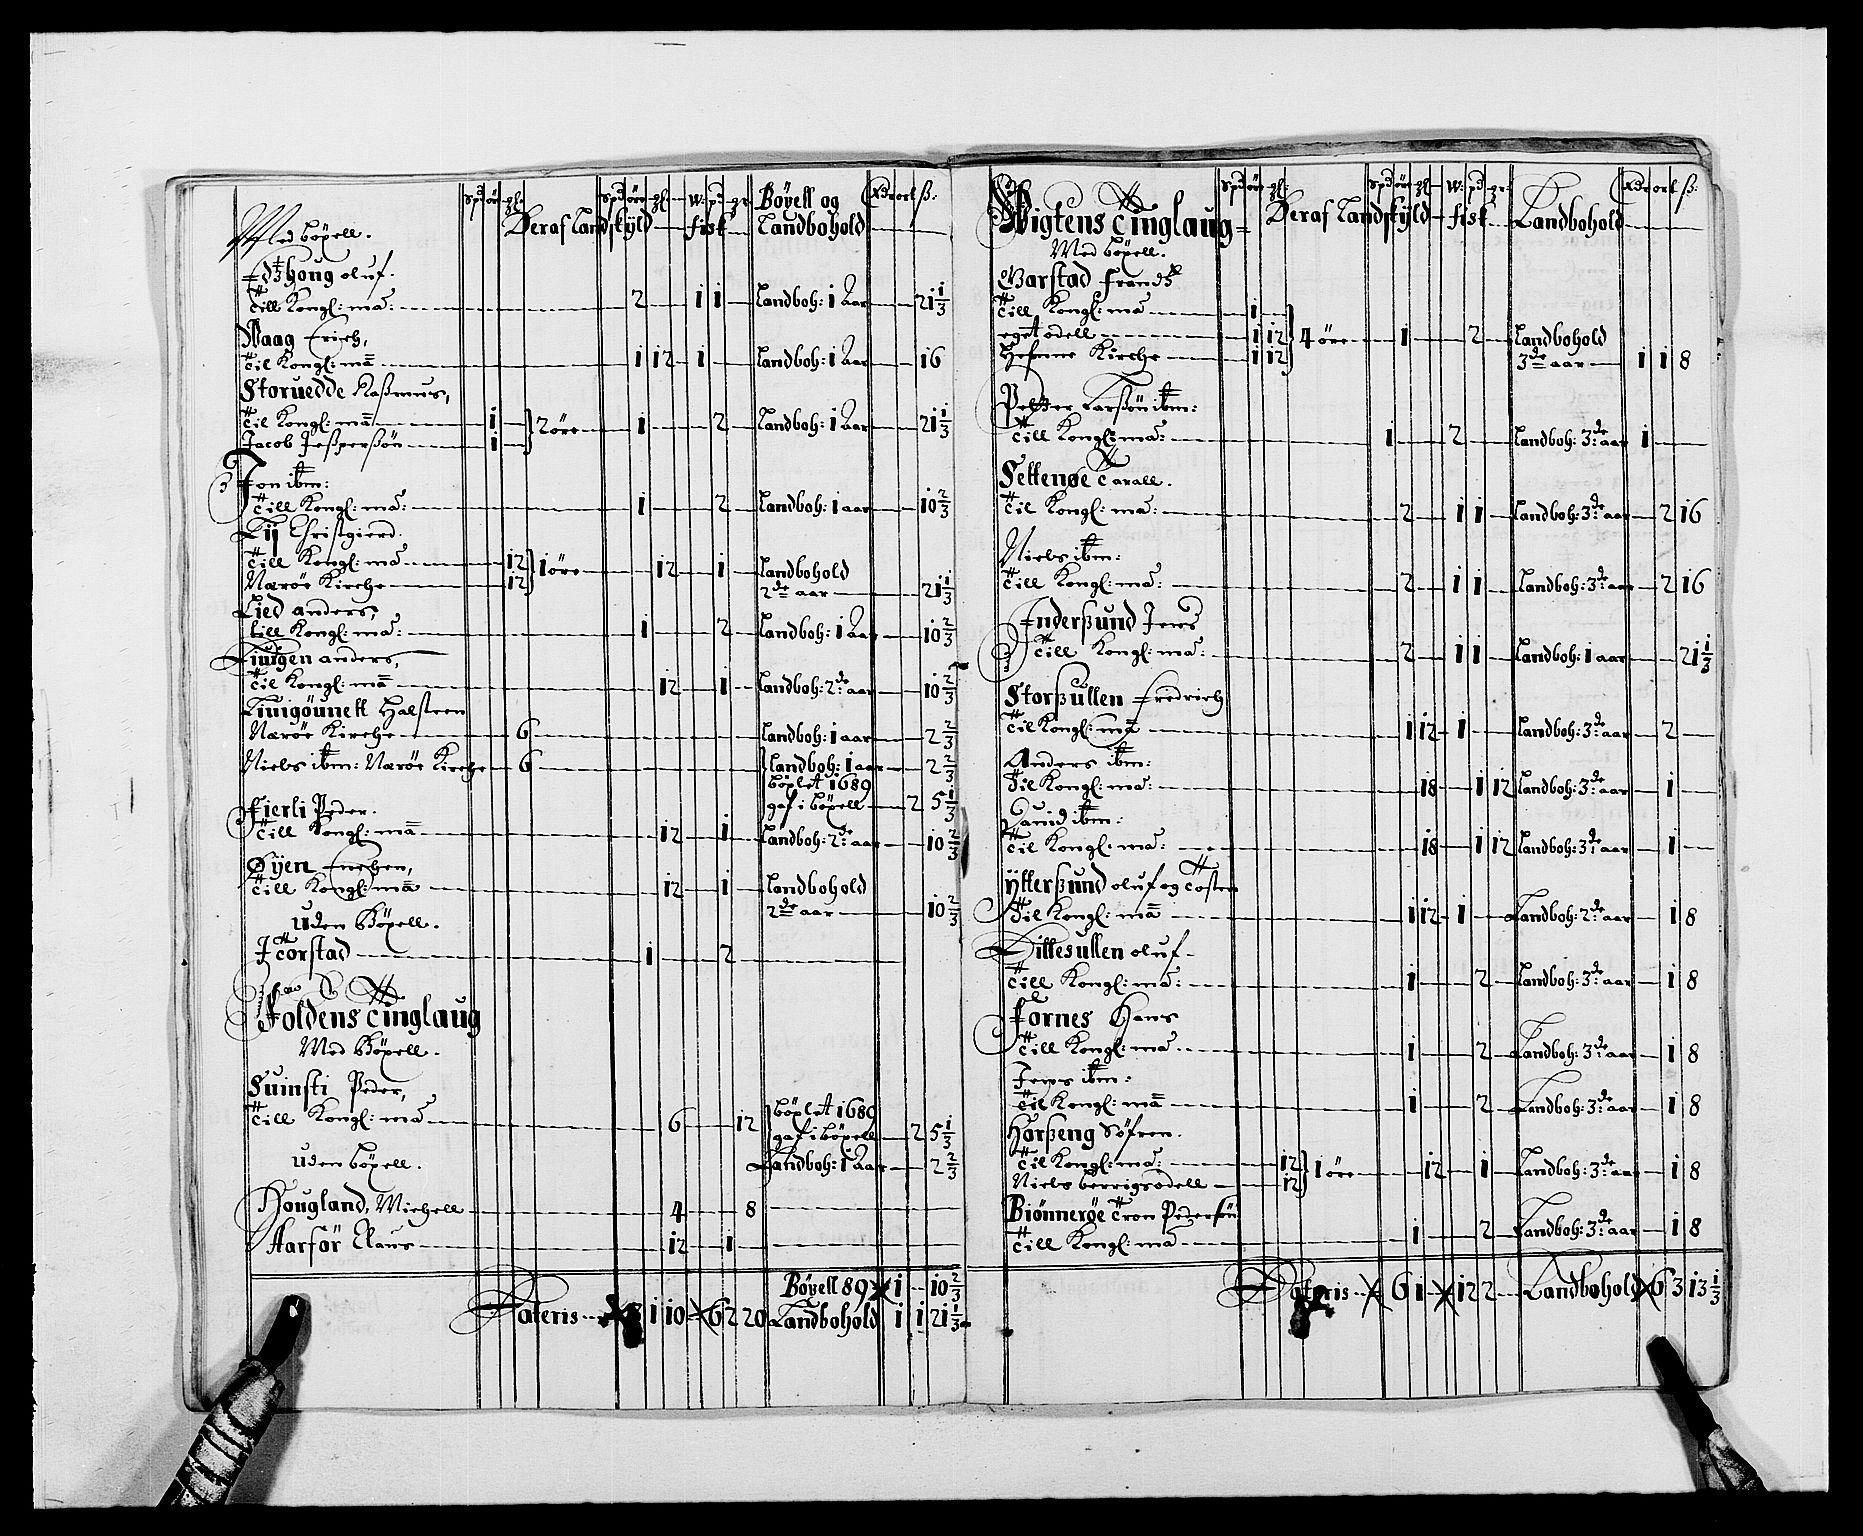 Spd ör gl: Spd öre gl W: pd gr Böxell og Rdr ort ß:
Med böxell. Deraf Landskyld fisk Landbohold
houg oluf.
Till Kongl: ma: 2 1 1 Landboh: 1 Aar 21 1/3
Waag Erich,
Til Kongl: ma 1 12 1 Landboh: 1 Aar 16
Storuedde Raßmus,
Til Kongl: ma 1 } 2 öre 1 2 Landboh: 1 Aar 21 1/3
Jacob Jeßperßön 1
Jon ibm:
Till Kongl: ma: 1 2 Landboh: 1 aar 10 2/3
Lij Christgierd.
Till Kongl: ma 12 } 1 öre 12 1 Landbohold
Nærøe Kirche 12 2de aar 21 1/3
Lied anders,
till Kongl: ma: 1 2 Landboh: 1 Aar 10 2/3
Liuigen anders,
Til Kongl: ma 12 1 Landboh: 2de aar 10 2/3
Liuigöunett Halsteen
Nærøe Kirche 6 Landboh: 1 aar 2 2/3
Niels ibm: Nærøe Kirche 6 Landboh: 1 aar 2 2/3
böxlet 1689
gaf i böxell 2 5 1/3
Fierli Peder.
Till Kongl: ma 12 1 Landboh: 2de aar 10 2/3
Øyen Enchen,
Till Kongl: ma 12 1 Landbohold
2de aar 10 2/3
uden Böxell.
Torstad 1 2
Foldens Tinglaug
Med Böxell.
Suinsti Peder,
Till Kongl: ma 6 12 böxlet 1689
gaf i böxell 2 5 1/3
uden böxell. Landboh: 1 Aar 2 2/3
Hougland, Michell 4 8
Aarför Claus 12 1
Böxell 89 1 10 2/3
Lateris 3 1 10 6 2 20 Landbohold 1 1 21 1/3
Spd öre gl: Spd öre gl W: pd gr: Rdr ort ß:
Wigtens Tinglaug Deraf Landskyld fisk Landbohold
Med böxell.
Garstad Frandz
Till Kongl: ma 1
eget odell 1 12 } 4 öre 1 2 Landbohold
Hefnne Kirche 1 12 3de aar 1 1 8
Petter Larßön ibm:
Till Kongl: ma: 1 2 Landboh: 3de aar 1
Settenøe Tarall.
Til Kongl: ma: 2 1 1 Landboh: 3de aar 2 16
Niels ibm:
Till Kongl: ma: 2 1 1 Landboh: 3de aar 2 16
Inderßund Jens
Till Kongl: ma: 2 1 1 Landboh: 1 aar 21 1/3
Storßullen Fredrich
Til Kongl: ma 1 12 1 Landboh: 3de aar 2
Anders ibm:
Til Kongl: ma: 18 1 12 Landboh: 3de aar 1
Dauid ibm:
Til Kongl: ma: 18 1 12 Landboh: 3de aar 1
ytterßund oluf og Tosten
Til Kongl: ma 1 12 1 Landboh: 2de aar 1 8
Littesullen oluf
Till Kongl: ma: 1 2 Landboh: 3de aar 1 8
Fornes Hans
Till Kongl: ma 1 2 Landboh: 3de aar 1 8
Jens ibm:
Til Kongl: ma 1 2 Landboh: 3de aar 1 8
Harßeng Söfren.
Til Kongl: ma: 12 } 1 öre 12 1 Landboh: 3de aar 1 8
Niels berrigsodell 12
Biönnerøe Tron Pederßön
Till Kongl: ma 1 2 Landboh: 3de aar 1 8
Lateris 6 1 12 2 Landbohold 6 3 13 1/3